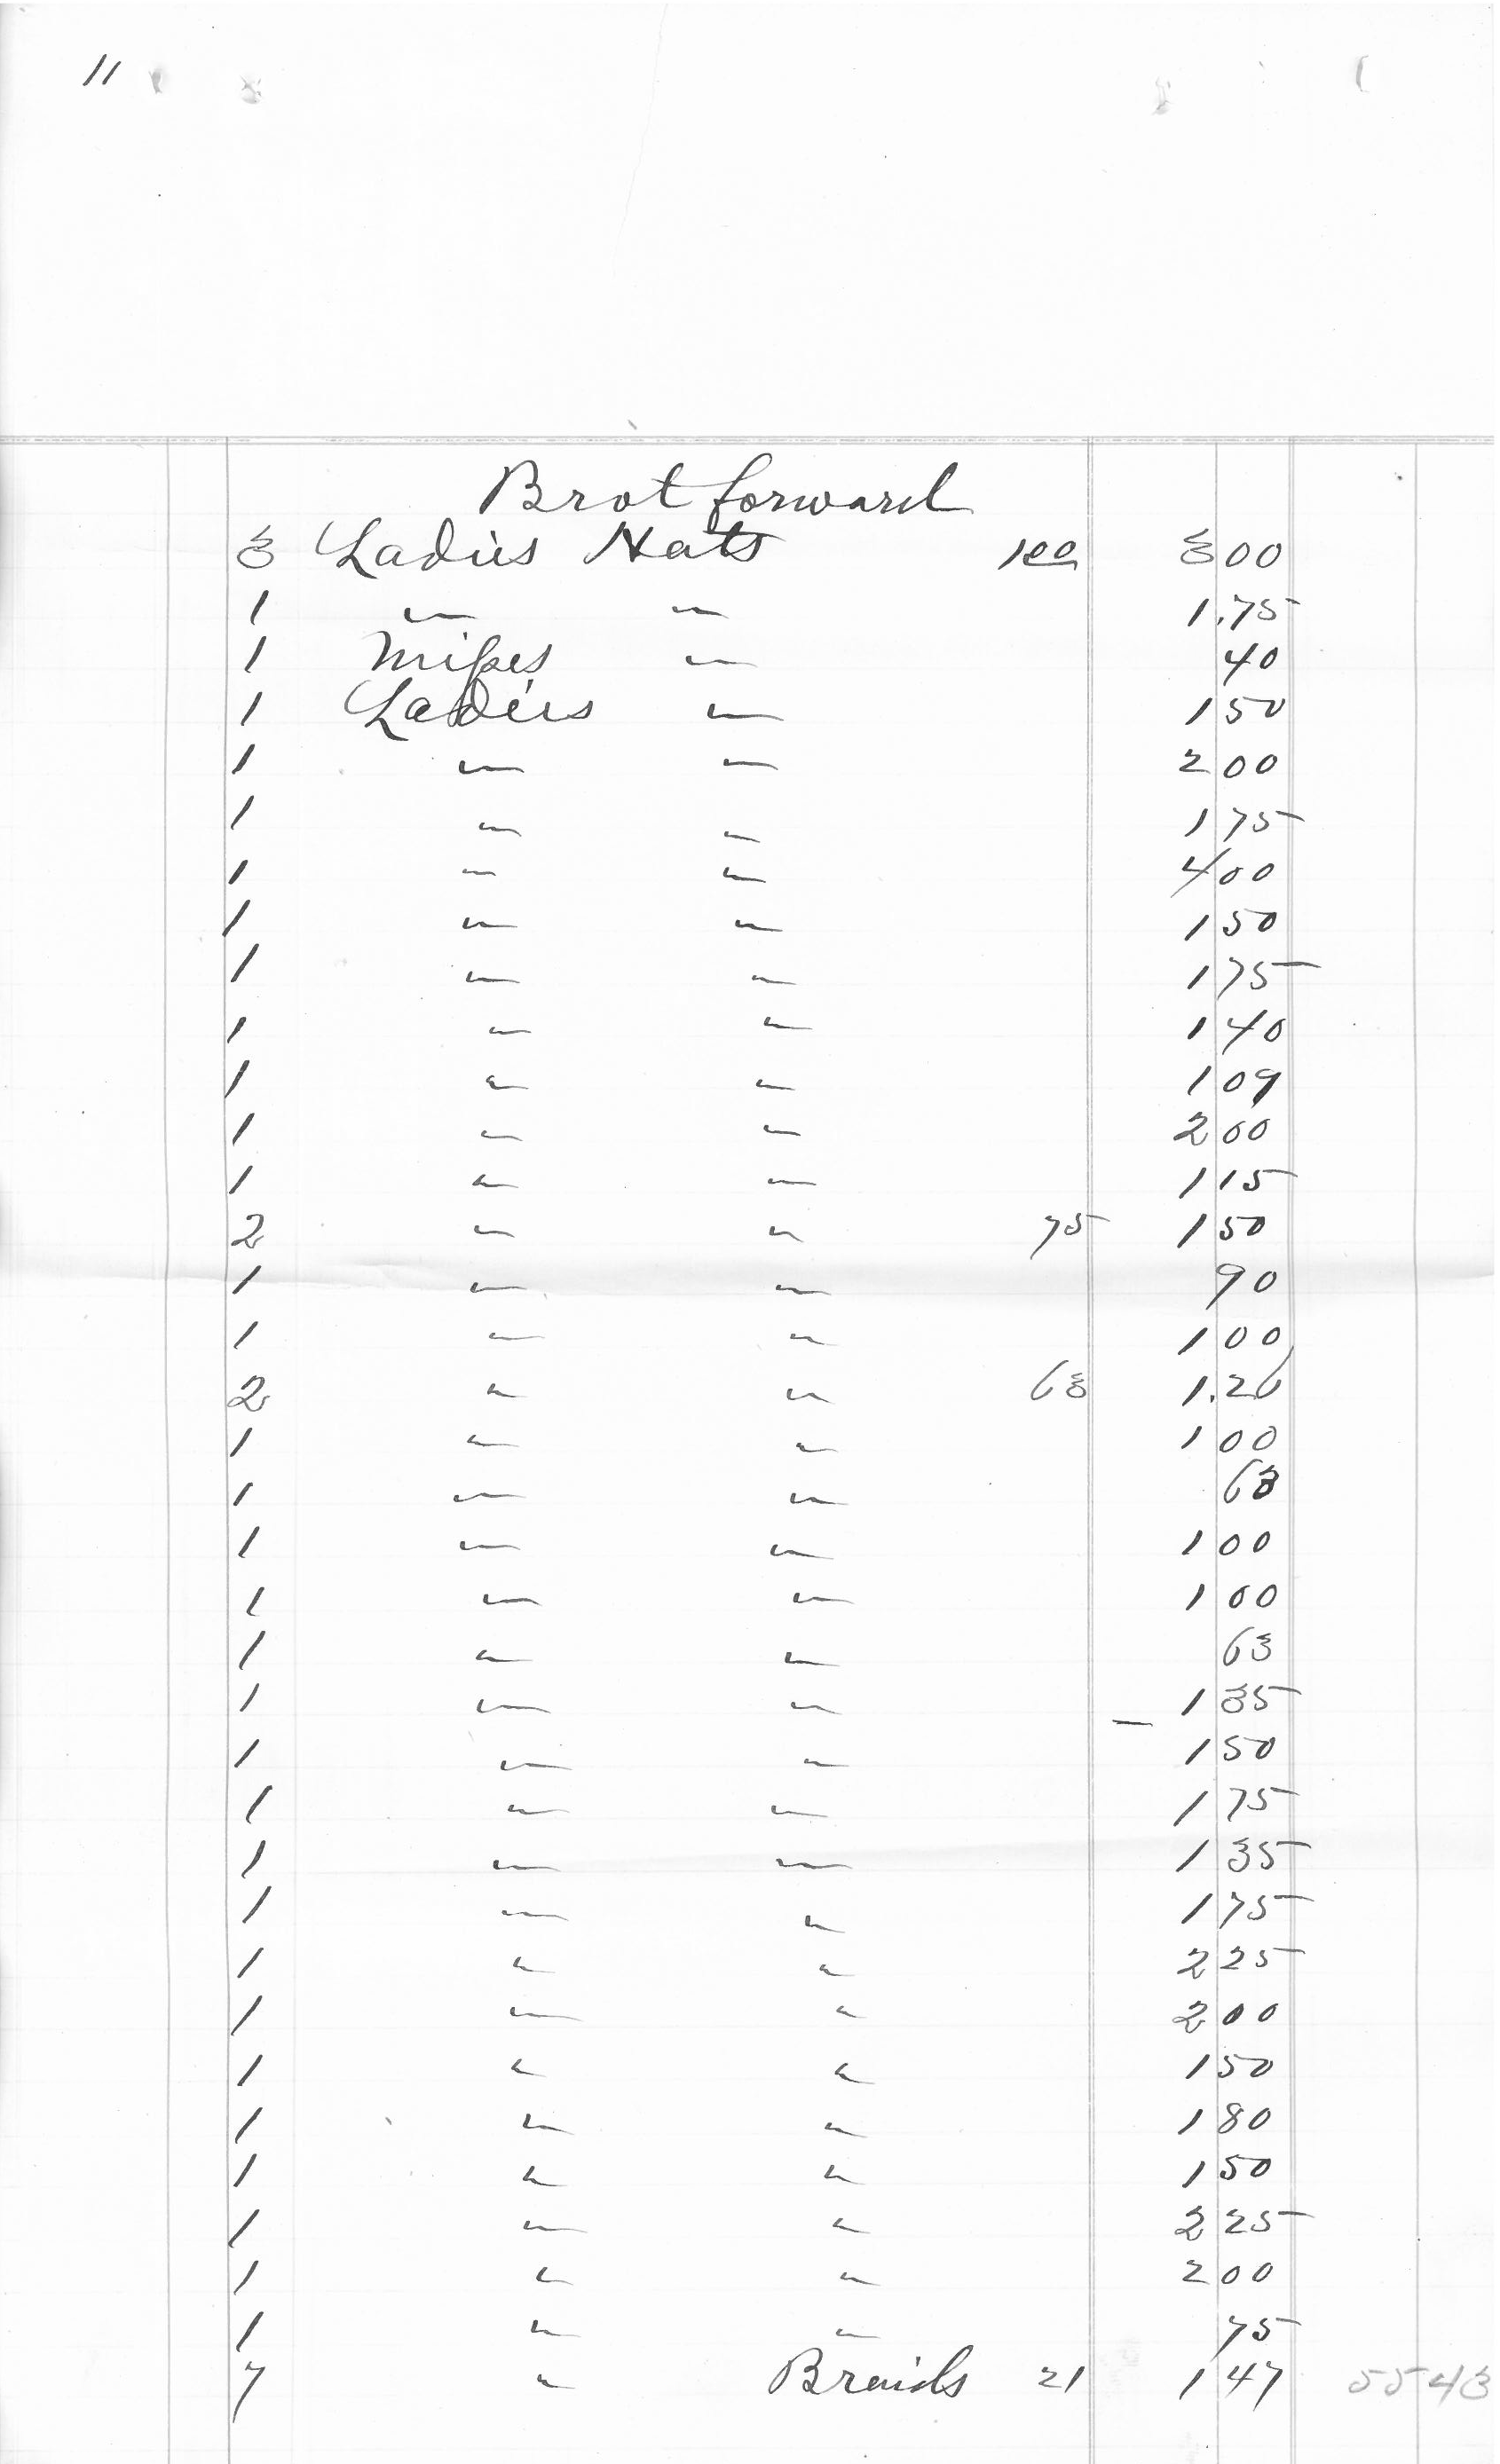 11
Brot forward
3 Ladies Hats 100 3 00
1 " " 1.75
1 Misses " 40
1 Ladies " 1 50
1 " " 2 00
1 " " 1 75
1 " " 4 00
1 " " 1 50
1 " " 1 75
1 " " 1 40
1 " " 1 09
1 " " 2 00
1 " " 1 15
2 " " 75 1 50
1 " " 90
1 " " 1 00
2 " " 63 1.26
1 " " 1 00
1 " " 63
1 " " 1 00
1 " " 1 00
1 " " 63
1 " " 1 35
1 " " 1 50
1 " " 1 75
1 " " 1 35
1 " " 1 75
1 " " 2 25
1 " " 2 00
1 " " 1 50
1 " " 1 80
1 " " 1 50
1 " " 2 25
1 " " 2 00
1 " " 75
7 " Braids 21 1 47 55 43